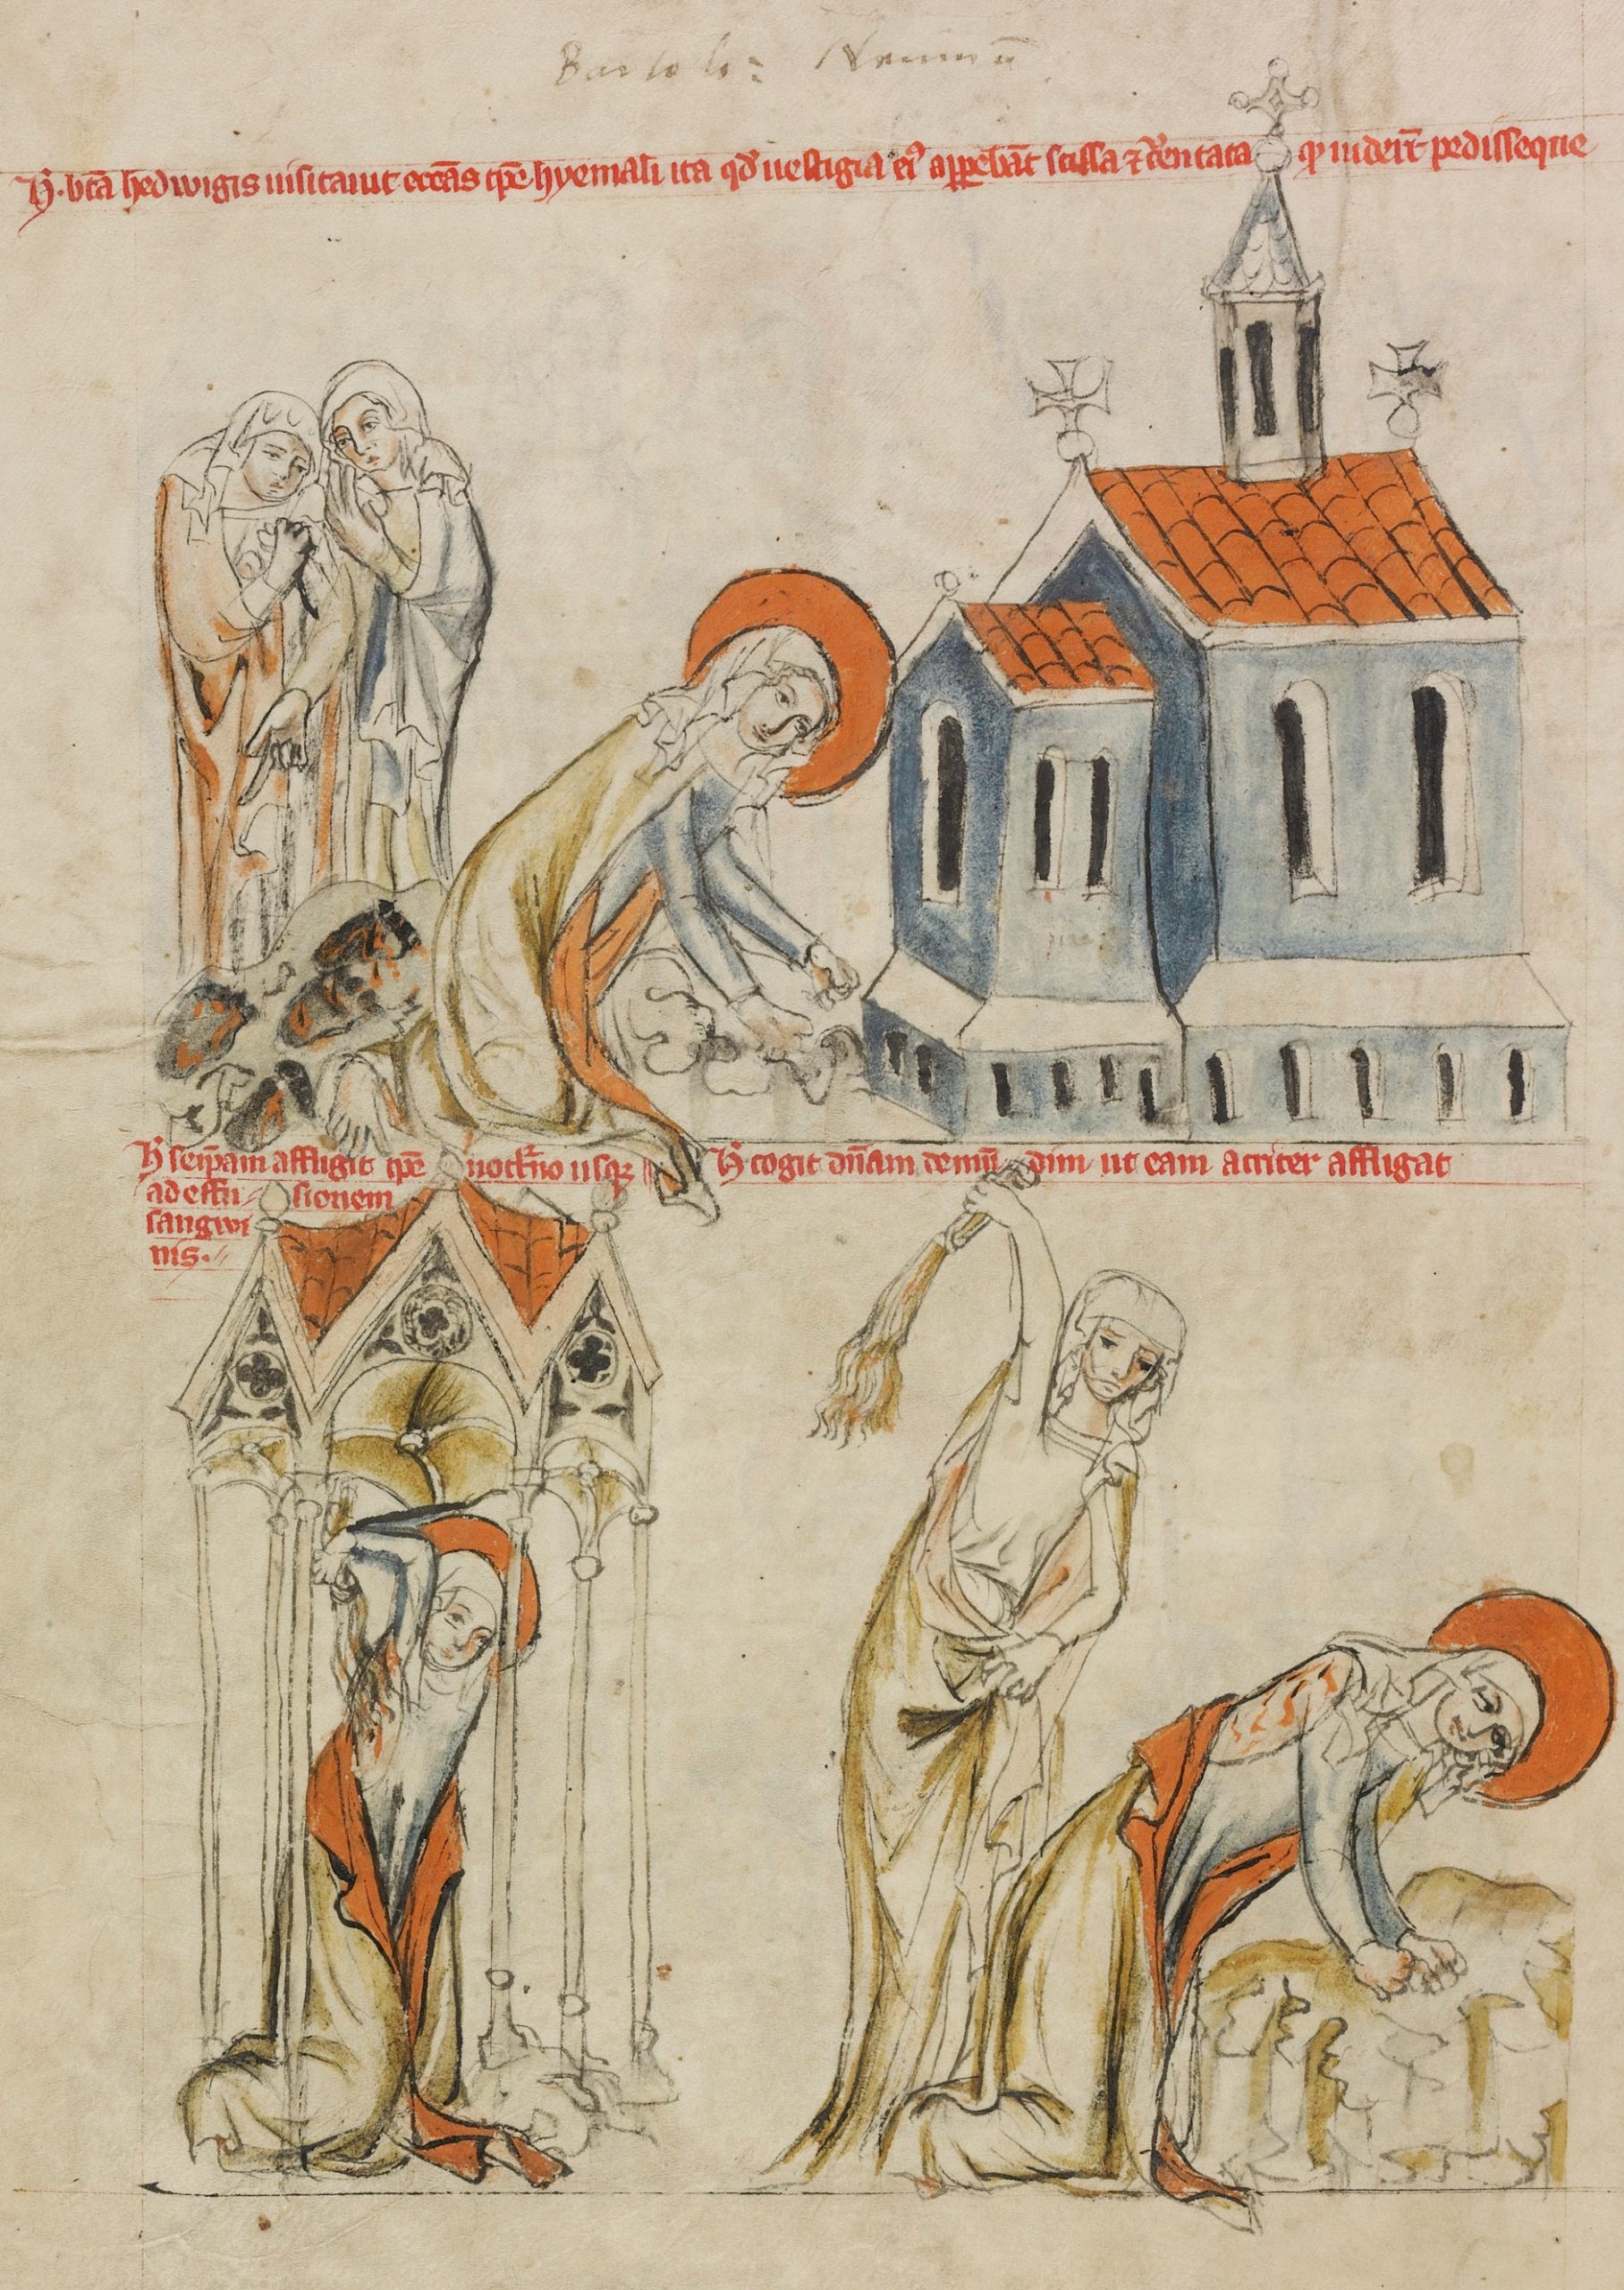 Bartolo:
H̄. btā hedwigis uisitauit eccās tꝑe hyemali ita qd̓ uestigia ei᷒ apparebāt scissa ⁊ cruentata q̇ uiderūt pedisseque
H̄ seip̄am affligit tꝑe nocturno usqꝫ
ad effusionem
sangwi
nis.
H̄ cogit dn̄am demūdim ut eam acriter affligat